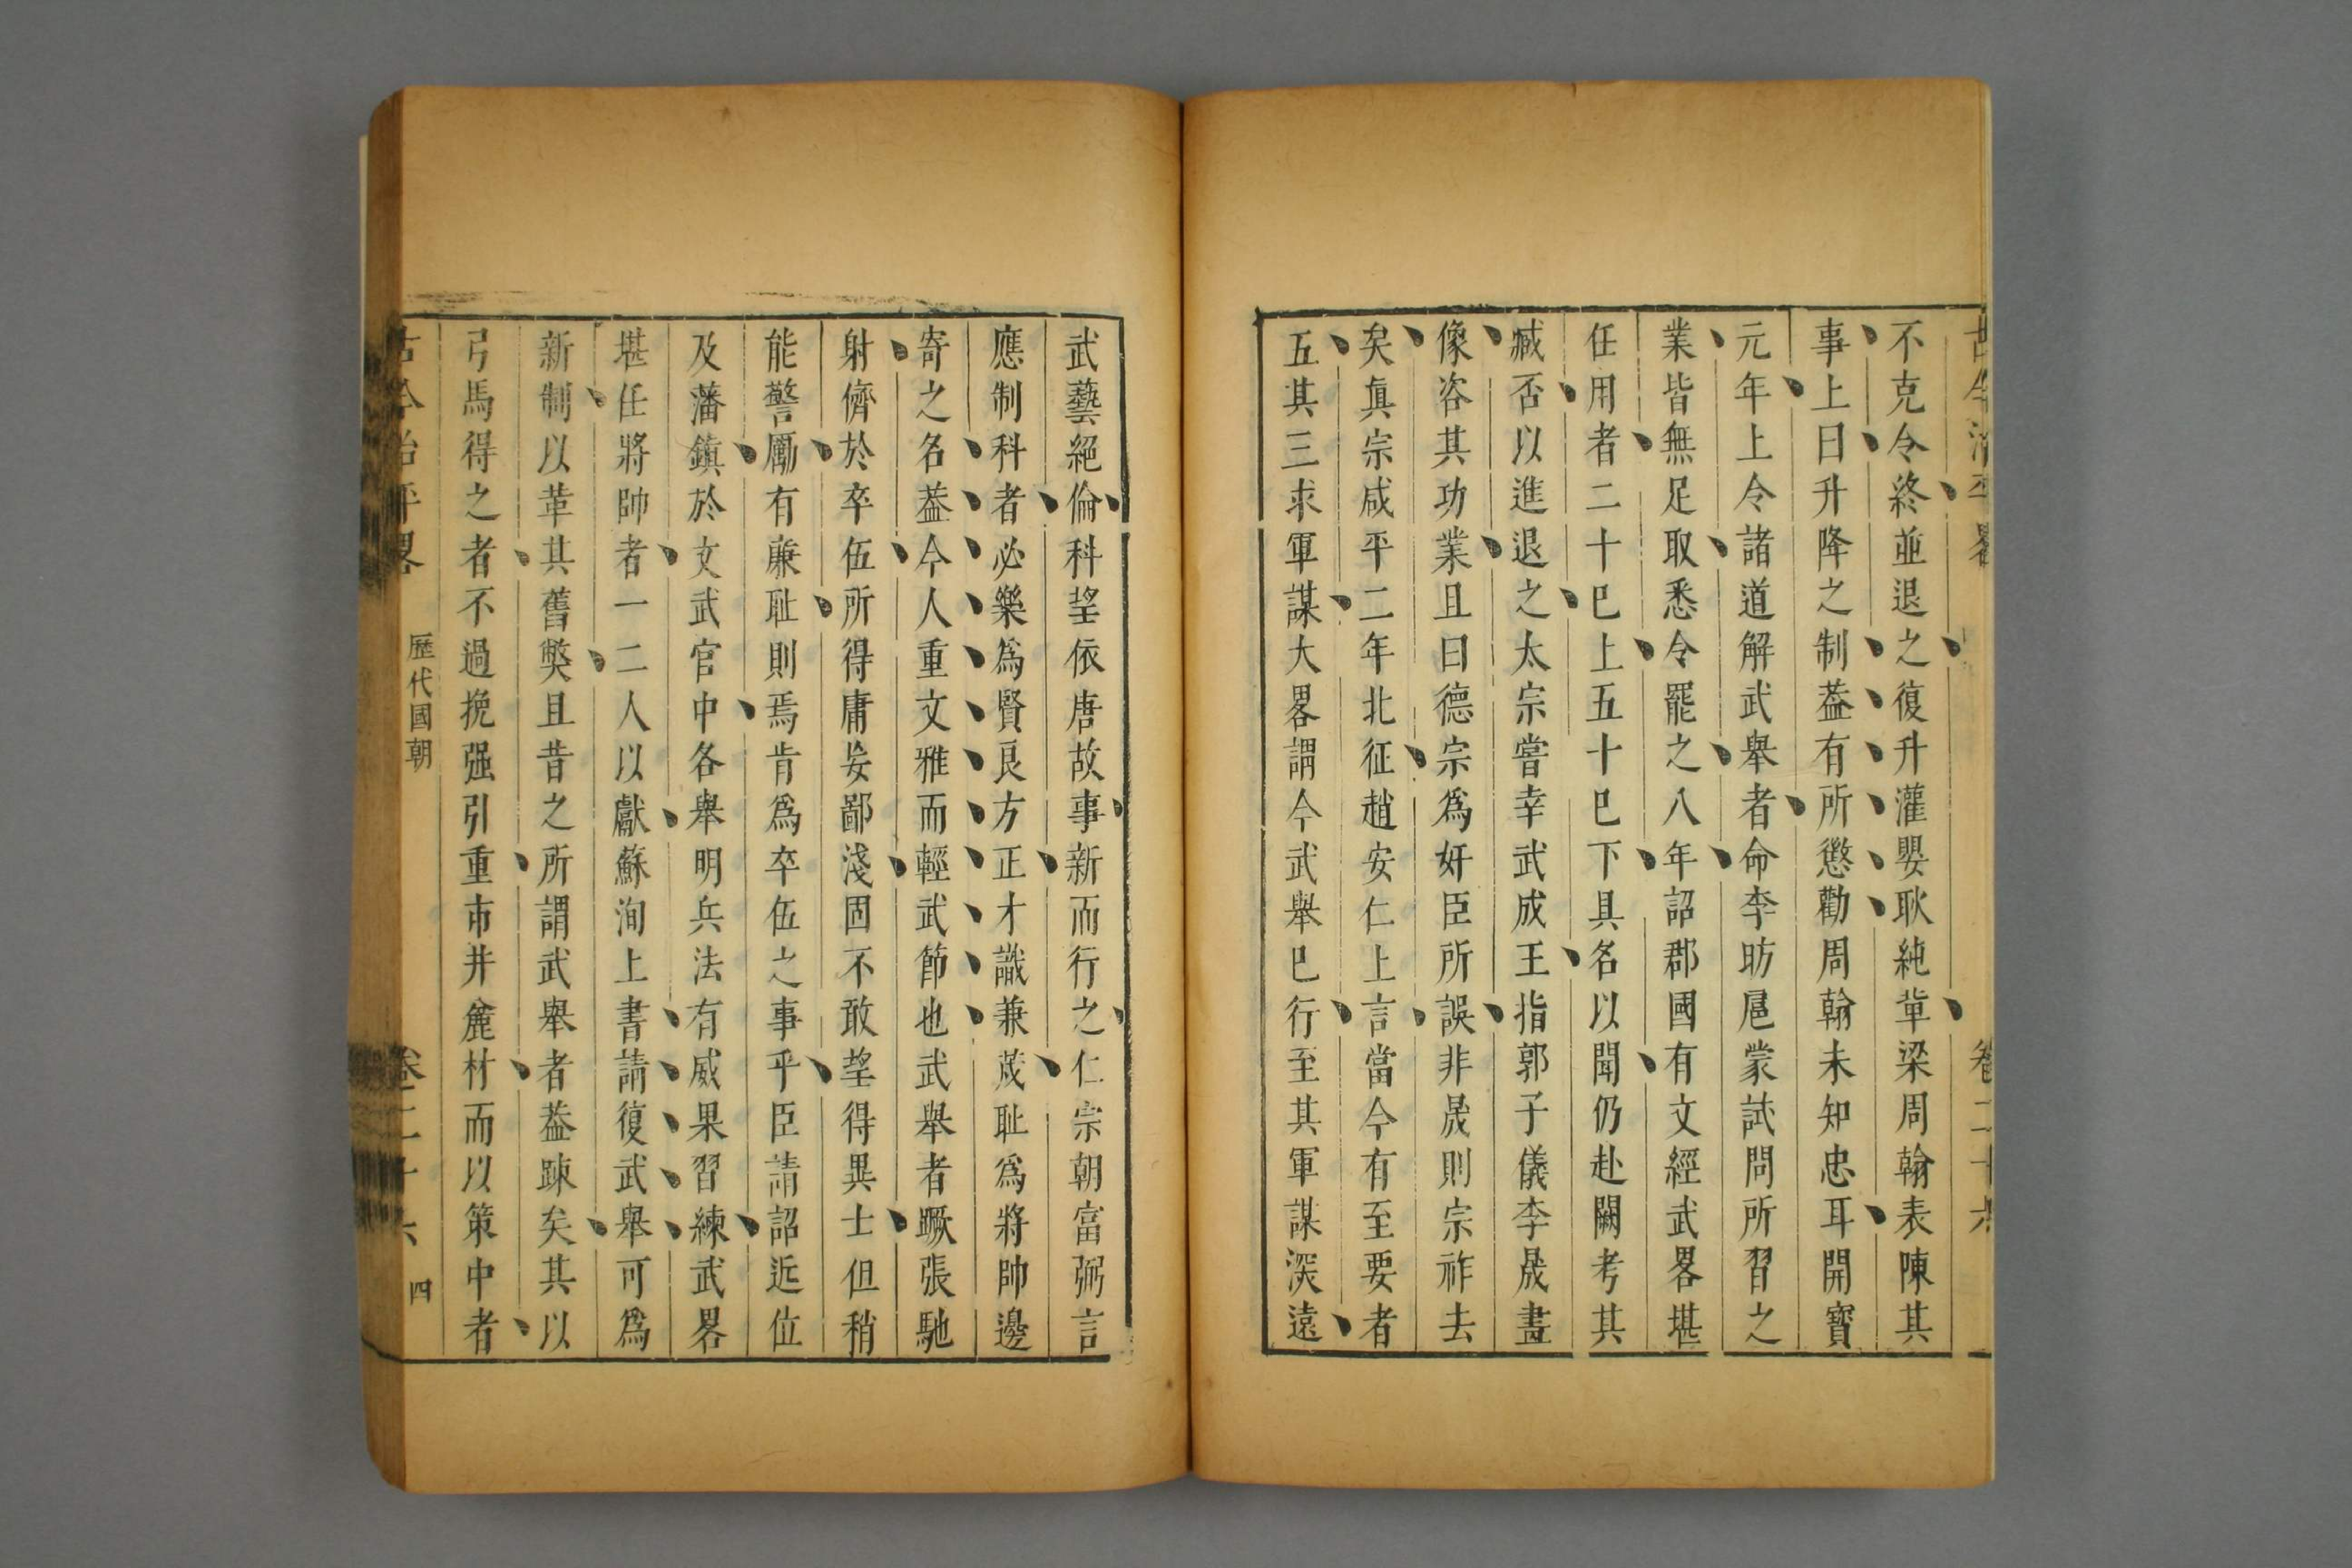 古今治平畧
卷二十六
不克令終並退之復升灌嬰耿純軰梁周翰表陳其
事上曰升降之制葢有所懲勸周翰未知忠耳開寳
元年上令諸道解武舉者命李昉扈蒙試問所習之
業皆無足取悉令罷之八年詔郡國有文經武畧堪
任用者二十巳上五十巳下具名以聞仍赴闕考其
臧否以進退之太宗嘗幸武成王指郭子儀李晟畫
像咨其功業且曰德宗爲奸臣所誤非晟則宗祚去
矣眞宗咸平二年北征趙安仁上言當今有至要者
五其三求軍謀大畧謂今武舉巳行至其軍謀深遠
武藝絕倫科望依唐故事新而行之仁宗朝富弼言
應制科者必樂爲賢良方正才識兼茂耻爲將帥邊
寄之名葢今人重文雅而輕武節也武舉者蹶張馳
射儕於卒伍所得庸妄鄙淺固不敢望得異士但稍
能警厲有廉耻則焉肯爲卒伍之事乎臣請詔近位
及藩鎮於文武官中各舉明兵法有威果習練武畧
堪任將帥者一二人以獻蘇洵上書請復武舉可爲
新制以革其舊獘且昔之所謂武舉者葢踈矣其以
弓馬得之者不過挽强引重市井麄材而以策中者
古今治平畧
歷代國朝
卷二十六
四